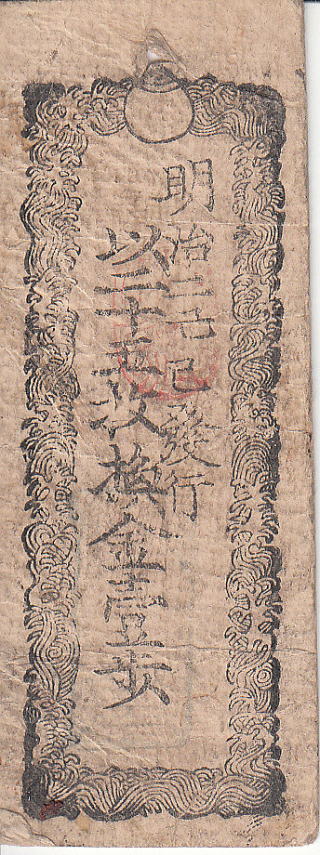 明治二己巳發行
以二十五枚換金壹歩